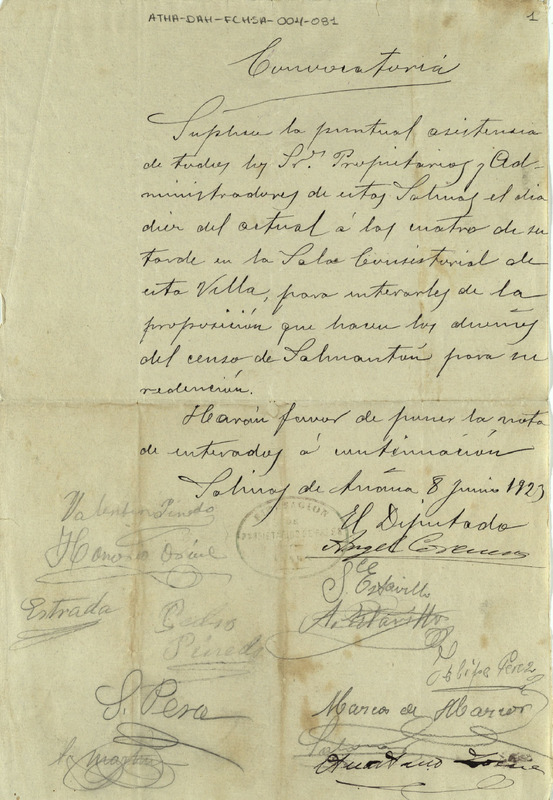 ATHA-DAH-FCHSA-004-081
1
Convocatoria
Suplico la puntual asistencia
de todos los Sres. Propietarios y Ad-
ministradores de estas Salinas el dia
diez del actual á las cuatro de su
tarde en la Sala Consistorial de
esta Villa, para enterarles de la
proposición que hacen los dueños
del censo de Salmantón para su
redención.
Harán favor de poner la nota
de enterados á continuación
Salinas de Añana 8 Junio 1923
El Diputado
Angel
Valentin Pinedo
Honorio
S. Estavillo
Estrada
A. Estavillo
Pedro
Pinedo
Felipe Perez
S. Pera
Marcos de